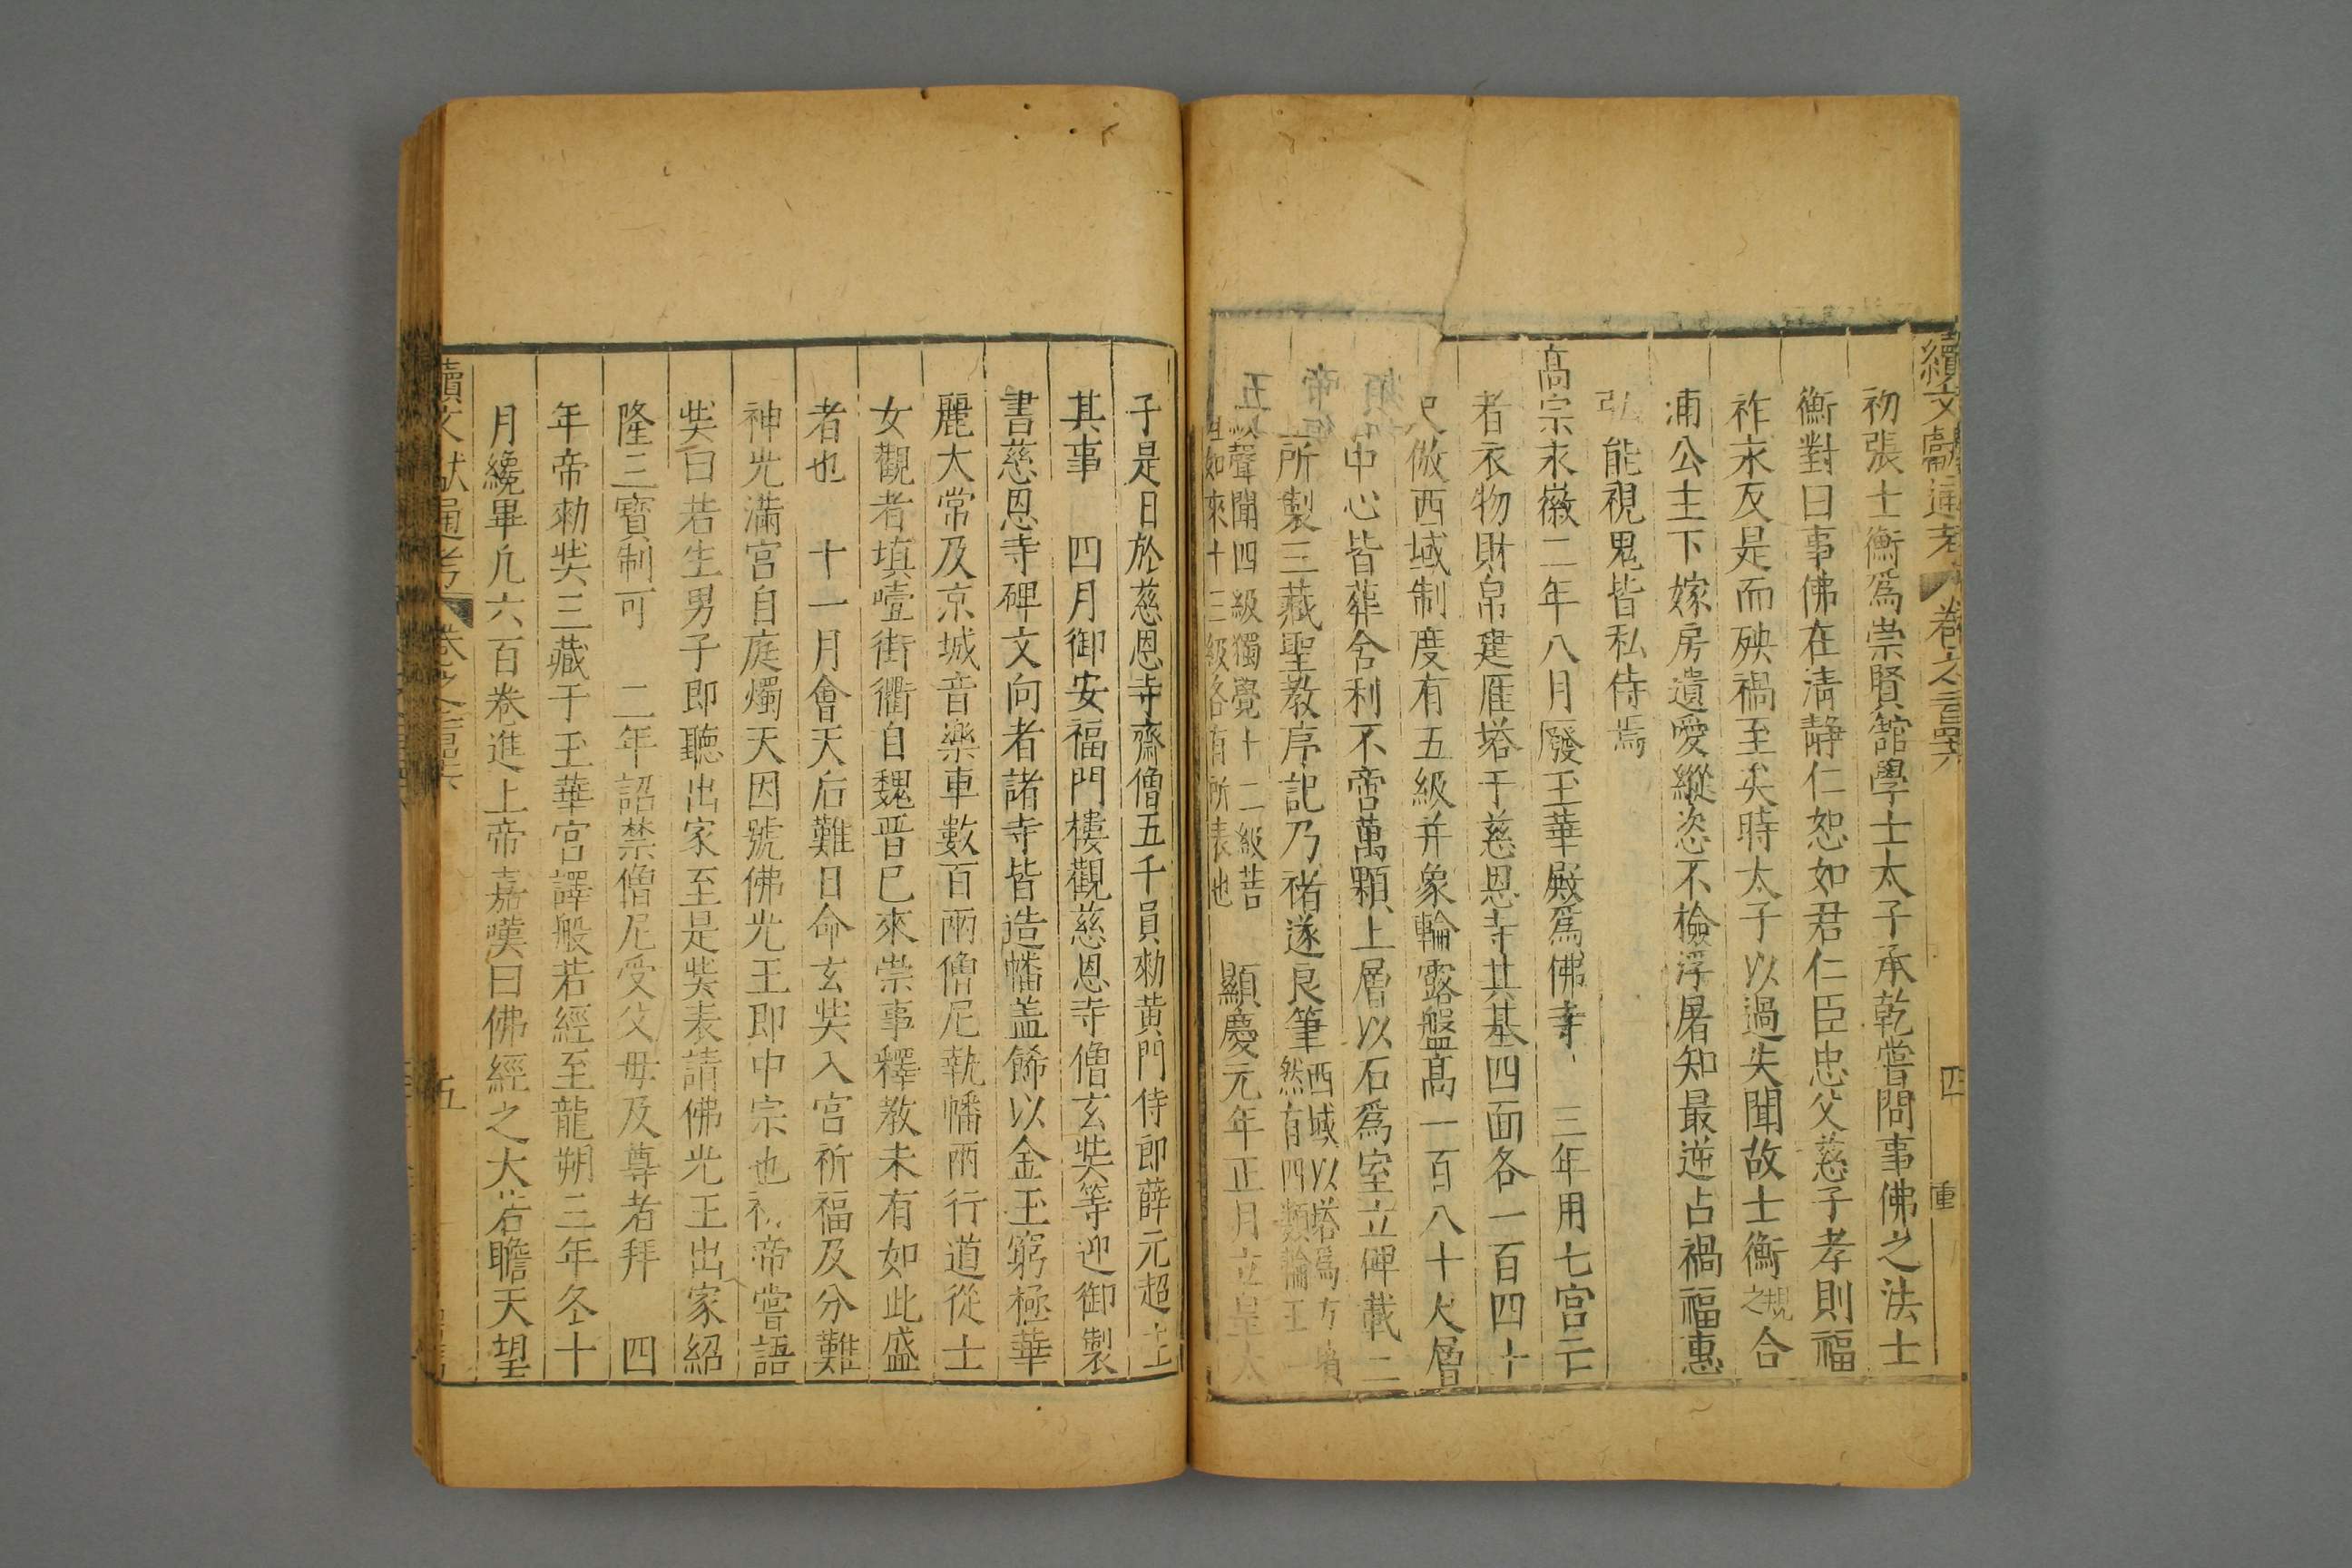 續文獻通考 卷之二百四十六 四
初張士衡爲崇賢舘學士太子承乾嘗問事佛之法士
衡對曰事佛在清静仁恕如君仁臣忠父慈子孝則福
祚永反是而殃禍至矣時太子以過失聞故士衡規之合
浦公主下嫁房遺愛縱恣不檢浮屠知最逆占禍福惠
弘能視鬼皆私侍焉
高宗永徽二年八月廢玉華殿爲佛寺 三年用七宫亡
者衣物財帛建雁塔于慈恩寺其基四面各一百四十
尺倣西域制度有五級并象輪露盤高一百八十尺層
中心皆葬舍利不啻萬顆上層以石爲室立碑載二
帝所製三藏聖教序記乃褚遂良筆西域以塔爲方墳然有四類論王一
級聲聞四級獨覺十二級菩如來十三級各有所表也 顯慶元年正月立皇太
子是日於慈恩寺齋僧五千員勑黄門侍郎薛元超
其事 四月御安福門樓觀慈恩寺僧玄奘等迎御製
書慈恩寺碑文向者諸寺皆造幡盖餙以金玉窮極華
麗大常及京城音樂車數百兩僧尼執幡兩行道從士
女觀者填噎街衢自魏晋已來崇事釋教未有如此盛
者也 十一月會天后難日命玄奘入宫祈福及分難
神光滿宫自庭燭天因號佛光王即中宗也初帝嘗語
奘曰若生男子即聽出家至是奘表請佛光王出家紹
隆三寶制可 二年詔禁僧尼受父母及尊者拜 四
年帝勑奘三藏于玉華宫譯般若經至龍朔三年冬十
月纔畢凢六百卷進上帝嘉嘆曰佛經之大若瞻天望
續文獻通考 五